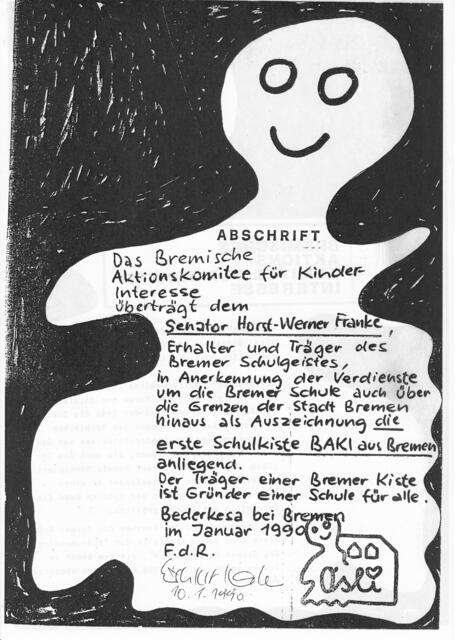 ABSCHRIFT
Das Bremische
Aktionskomitee für Kinder-
Interesse
überträgt dem
Senator Horst-Werner Franke,
Erhalter und Träger des
Bremer Schulgeistes,
in Anerkennung der Verdienste
um die Bremer Schule auch über
die Grenzen der Stadt Bremen
hinaus als Auszeichnung die
erste Schulkiste BAKI aus Bremen
anliegend.
Der Träger einer Bremer Kiste
ist Gründer einer Schule für alle.
Bederkesa bei Bremen
im Januar 1990
F.d.R.
10.1.1990